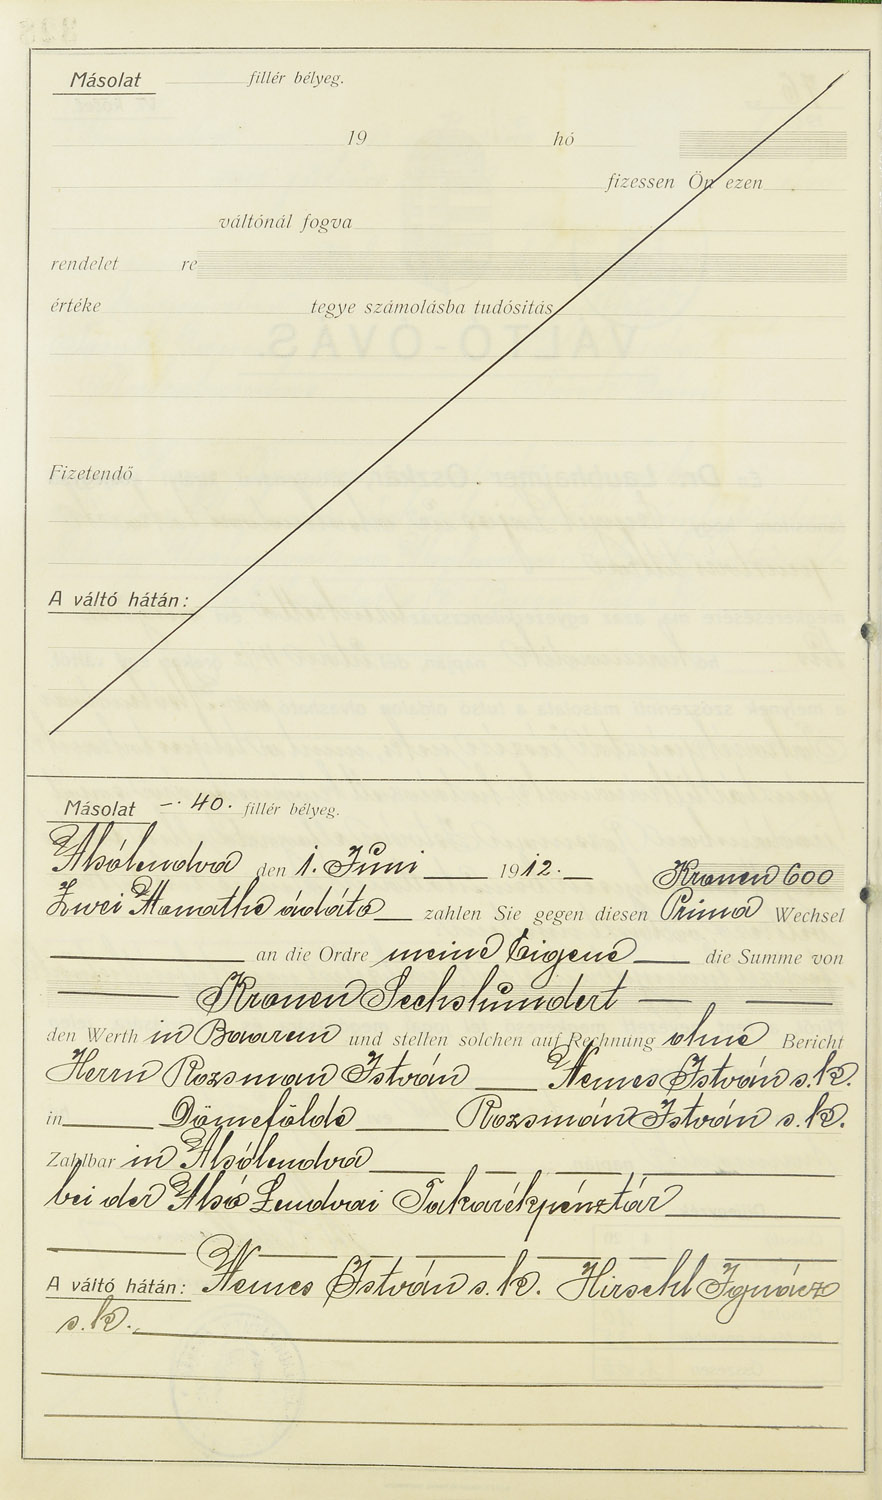 Másolat fillér bélyeg.
19 hó
fizessen Ön ezen
váltónál fogva
rendelet re
értéke tegye számolásba tudósítás
Fizetendő
A váltó hátán:
Másolat —·40· fillér bélyeg.
Alsólendva den 1. Juni 1912. Kronen 600
Zwei Monathe ádáto zahlen Sie gegen diesen Prima Wechsel
an die Ordre meine Eigene die Summe von
Kronen Sechshundert
den Werth in Baaren und stellen solchen auf Rechnung ohne Bericht
Herrn Rozsman István Nemes István s.k.
in Dömefölde Rozsmán István s.k.
Zahlbar in Alsólendva
bei der Alsó Lendvai Takarékpénztár
A váltó hátán: Nemes István s.k. Hirschl Ignácz
s.k.